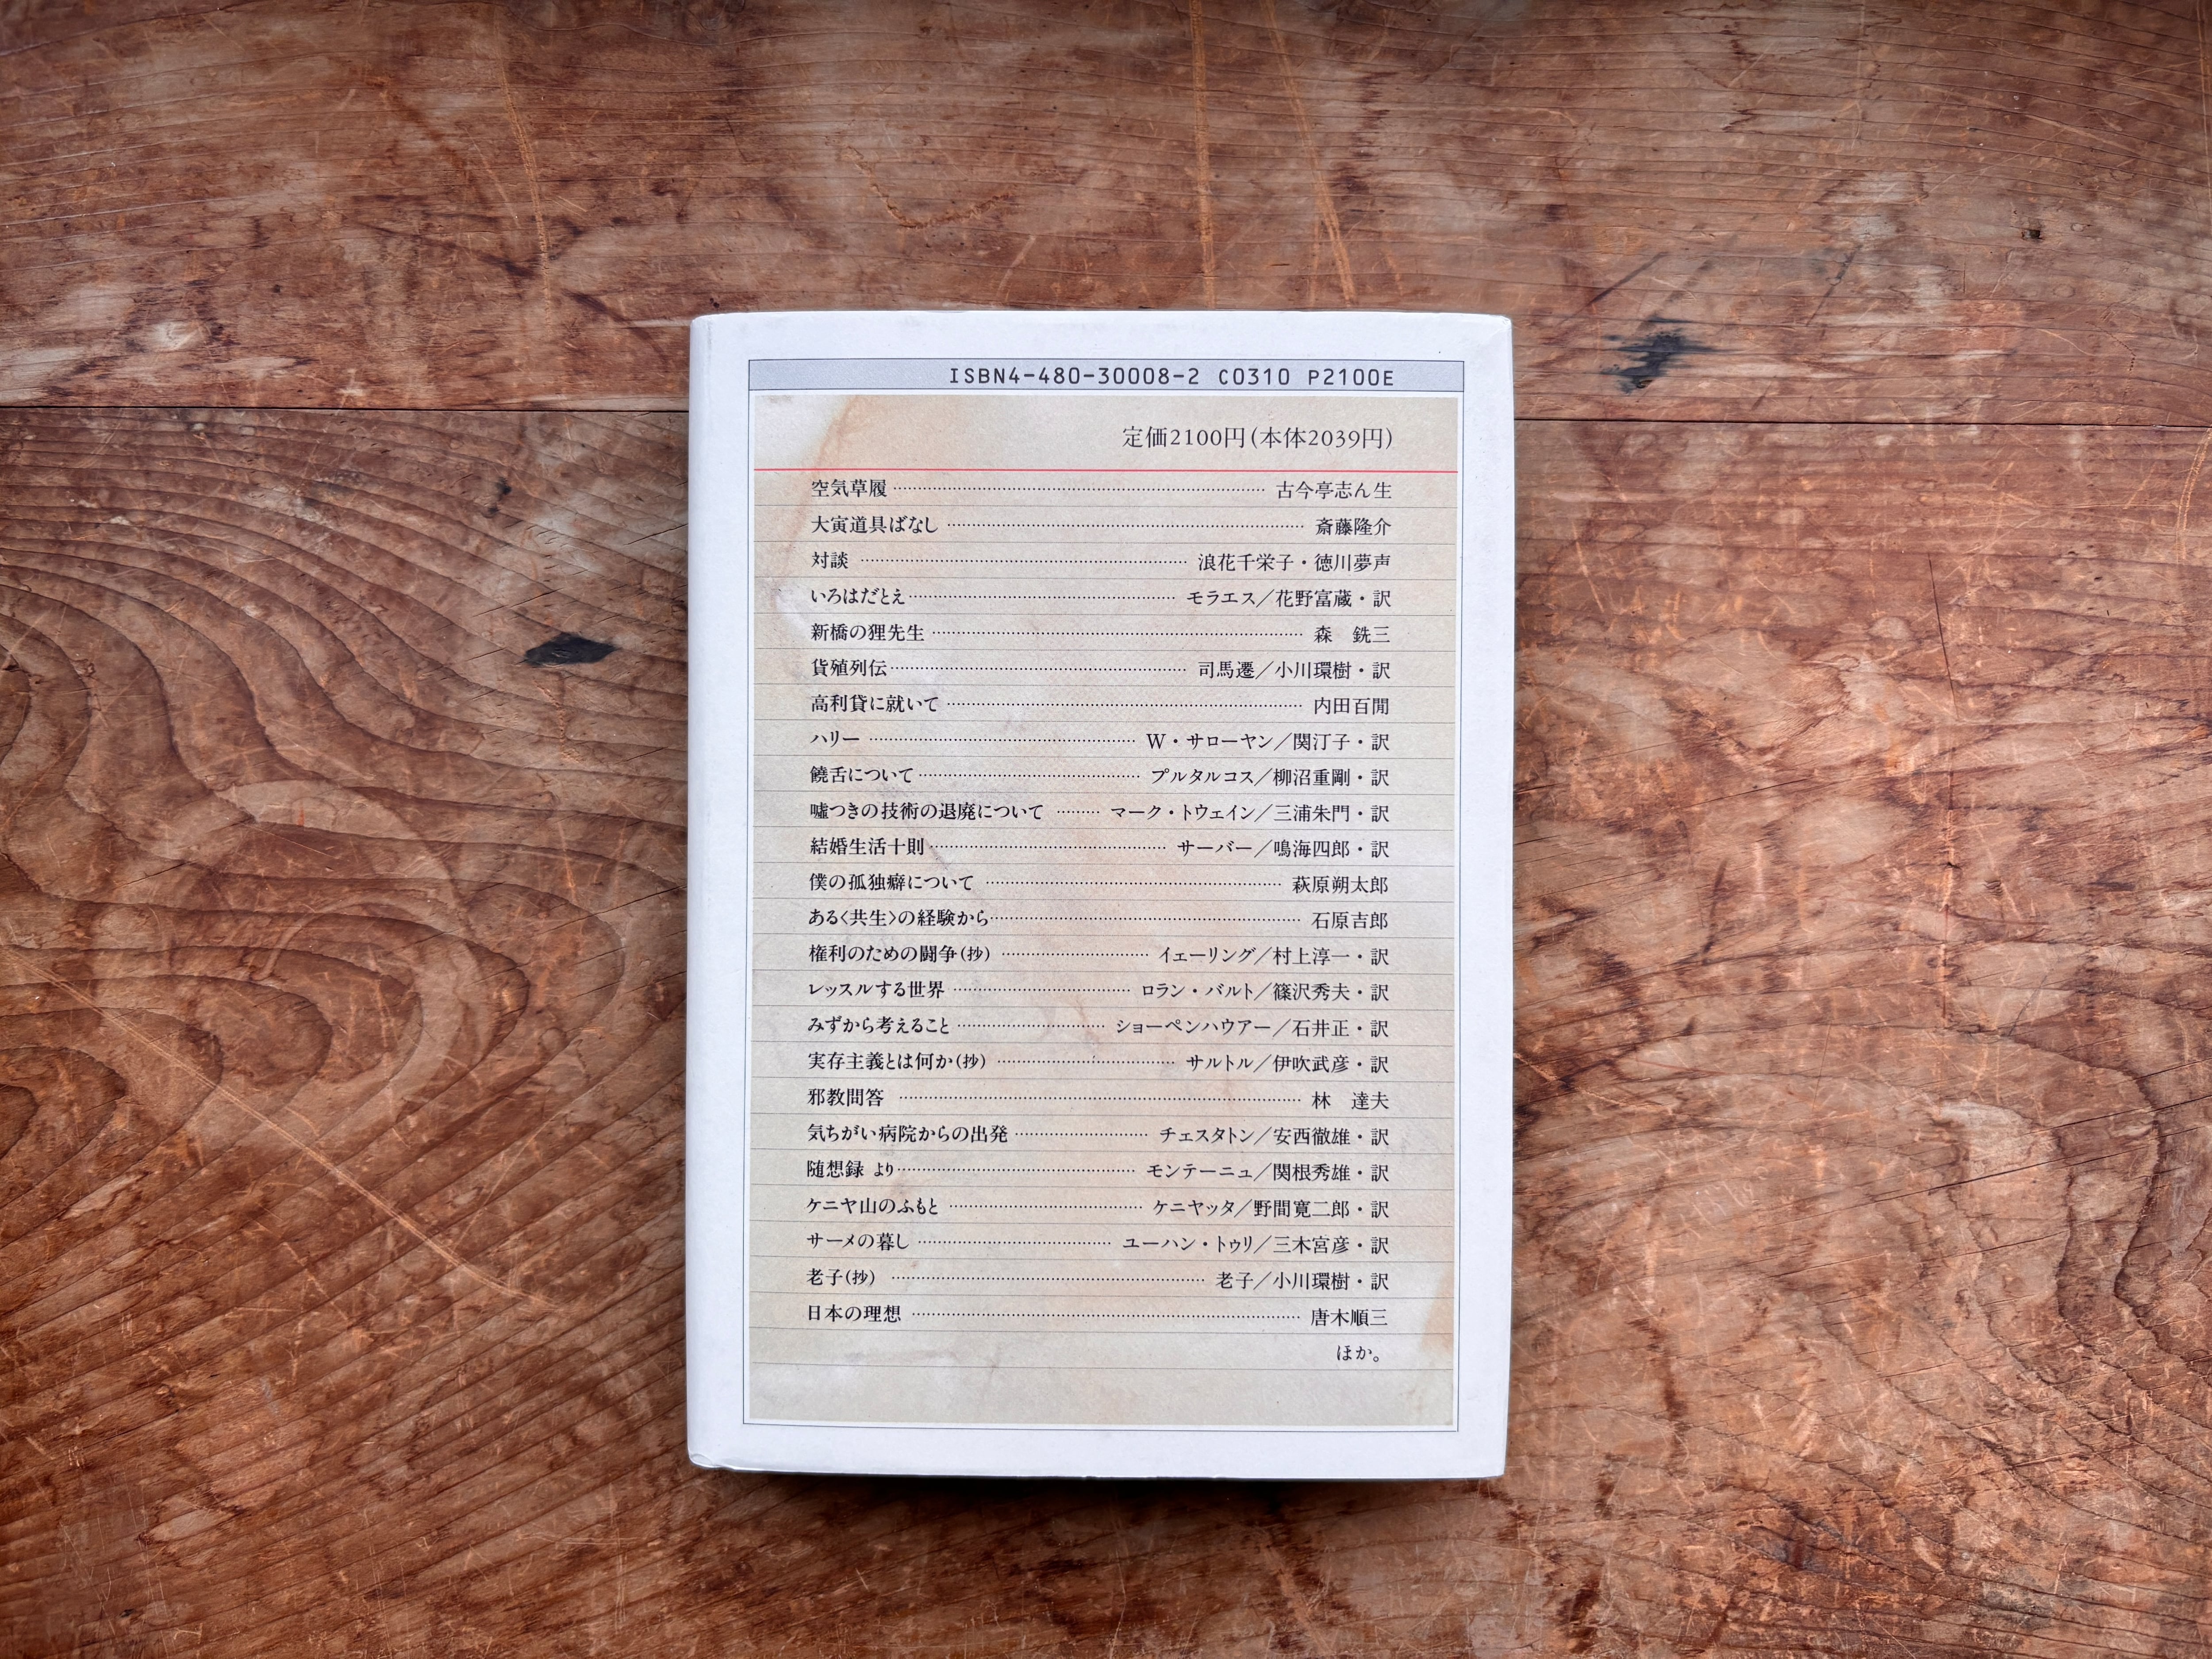 ISBN4-480-30008-2 C0310 P2100E
定価2100円(本体2039円)
空気草履……古今亭志ん生
大寅道具ばなし……斎藤隆介
対談……浪花千栄子・徳川夢声
いろはだとえ……モラエス／花野富蔵・訳
新橋の狸先生……森　銑三
貨殖列伝……司馬遷／小川環樹・訳
高利貸に就いて……内田百閒
ハリー……W・サローヤン／関汀子・訳
饒舌について……プルタルコス／柳沼重剛・訳
嘘つきの技術の退廃について……マーク・トウェイン／三浦朱門・訳
結婚生活十則……サーバー／鳴海四郎・訳
僕の孤独癖について……萩原朔太郎
ある〈共生〉の経験から……石原吉郎
権利のための闘争(抄)……イェーリング／村上淳一・訳
レッスルする世界……ロラン・バルト／篠沢秀夫・訳
みずから考えること……ショーペンハウアー／石井正・訳
実存主義とは何か(抄)……サルトル／伊吹武彦・訳
邪教問答……林　達夫
気ちがい病院からの出発……チェスタトン／安西徹雄・訳
随想録 より……モンテーニュ／関根秀雄・訳
ケニヤ山のふもと……ケニヤッタ／野間寛二郎・訳
サーメの暮し……ユーハン・トゥリ／三木宮彦・訳
老子(抄)……老子／小川環樹・訳
日本の理想……唐木順三
ほか。